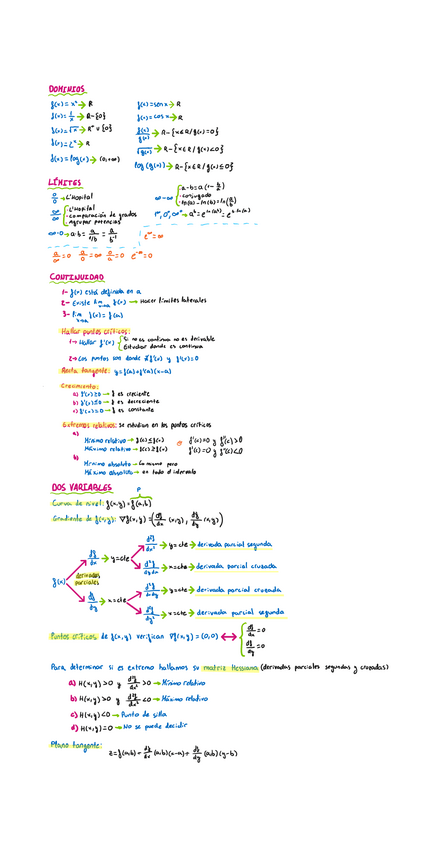 DOMINIOS
f(x) = xⁿ → R    f(x) = sen x → R
f(x) = 1/x → R-{0}    f(x) = cos x → R
f(x) = √x → R⁺ ∪ {0}    f(x)/g(x) → R-{x∈R/g(x)=0}
f(x) = eˣ → R    √g(x) → R-{x∈R/g(x)<0}
f(x) = log(x) → (0,+∞)    log(g(x)) → R-{x∈R/g(x)≤0}
LÍMITES
0/0 → L'Hopital    ∞-∞ { a-b = a(1-b/a)
·conjugado
·ln(a)-ln(b) = ln(a/b)
∞/∞ { L'Hopital
·comparación de grados
·Agrupar potencias
∞·0 → a·b = a/(1/b) = a/b⁻¹
e^∞ = ∞
a/∞ = 0    a/0 = ∞    0/a = 0    e^-∞ = 0
CONTINUIDAD
1- f(x) está definida en a
2- Existe lim x→a f(x) → Hacer límites laterales
3- lim x→a f(x) = f(a)
Hallar puntos críticos:
1- Hallar f'(x) { Si no es continua no es derivable
Estudiar donde es continua
2→ Los puntos son donde ∄f'(x) y f'(x)=0
Recta tangente: y = f(a)+f'(a)(x-a)
Crecimiento:
a) f'(x)≥0 → f es creciente
b) f'(x)≤0 → f es decreciente
c) f'(x)=0 → f es constante
Extremos relativos: Se estudian en los puntos críticos
a)
Mínimo relativo → f(c)≤f(x)    o    f'(c)=0 y f''(c)>0
Máximo relativo → f(c)≥f(x)    f'(c)=0 y f''(c)<0
b)
Mínimo absoluto → Lo mismo pero
Máximo absoluto → en todo el intervalo
DOS VARIABLES
P
Curva de nivel: f(x,y) = f(a,b)
Gradiente de f(x,y): ∇f(x,y) = (df/dx (x,y), df/dy (x,y))
d²f/dx² → y=cte → derivada parcial segunda
df/dx → y=cte
d²f/dydx → x=cte → derivada parcial cruzada
f(x) derivadas parciales
d²f/dxdy → y=cte → derivada parcial cruzada
df/dy → x=cte
d²f/dy² → x=cte → derivada parcial segunda
Puntos críticos de f(x,y) verifican ∇f(x,y) = (0,0) ↔ { df/dx = 0
df/dy = 0
Para determinar si es extremo hallamos su matriz Hessiana (derivadas parciales segundas y cruzadas)
a) H(x,y)>0 y d²f/dx² >0 → Mínimo relativo
b) H(x,y)>0 y d²f/dx² <0 → Máximo relativo
c) H(x,y)<0 → Punto de silla
d) H(x,y)=0 → No se puede decidir
Plano tangente: z = f(a,b) + df/dx (a,b)(x-a) + df/dy (a,b)(y-b)